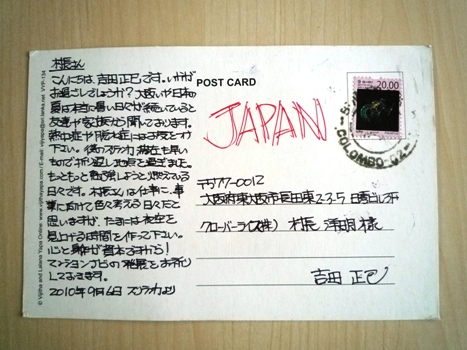 村長さん
こんにちは、吉田正巳です。いかが
お過ごしでしょうか？大阪いや日本の
夏は本当に暑い日々が続いていると
友達や客社長から聞いております。
熱中症や脱水症にはお気をつけ
下さい。僕のスリランカ滞在も早い
もので折り返し地点を過ぎました。
もっともっと勉強しようと燃えている
日々です。村長さんは仕事に、事
業に向けて色々考える日々だと
思いますが、たまには夜空を
見上げる時間を作って下さい。
心と身体が資本ですから！
マンションナビの発展をお祈り
しております。
2010年9月6日 スリランカより
© Vijitha and Lalana Yapa Online: www.vijithayapa.com / E-mail: vijiyapa@sri.lanka.net VYP-134
POST CARD
JAPAN
20.00
COLOMBO
〒577-0012
大阪府東大阪市長田東2-3-5 日秀ビル7F
クローバーライズ(株) 村長 洋明 様
吉田 正巳